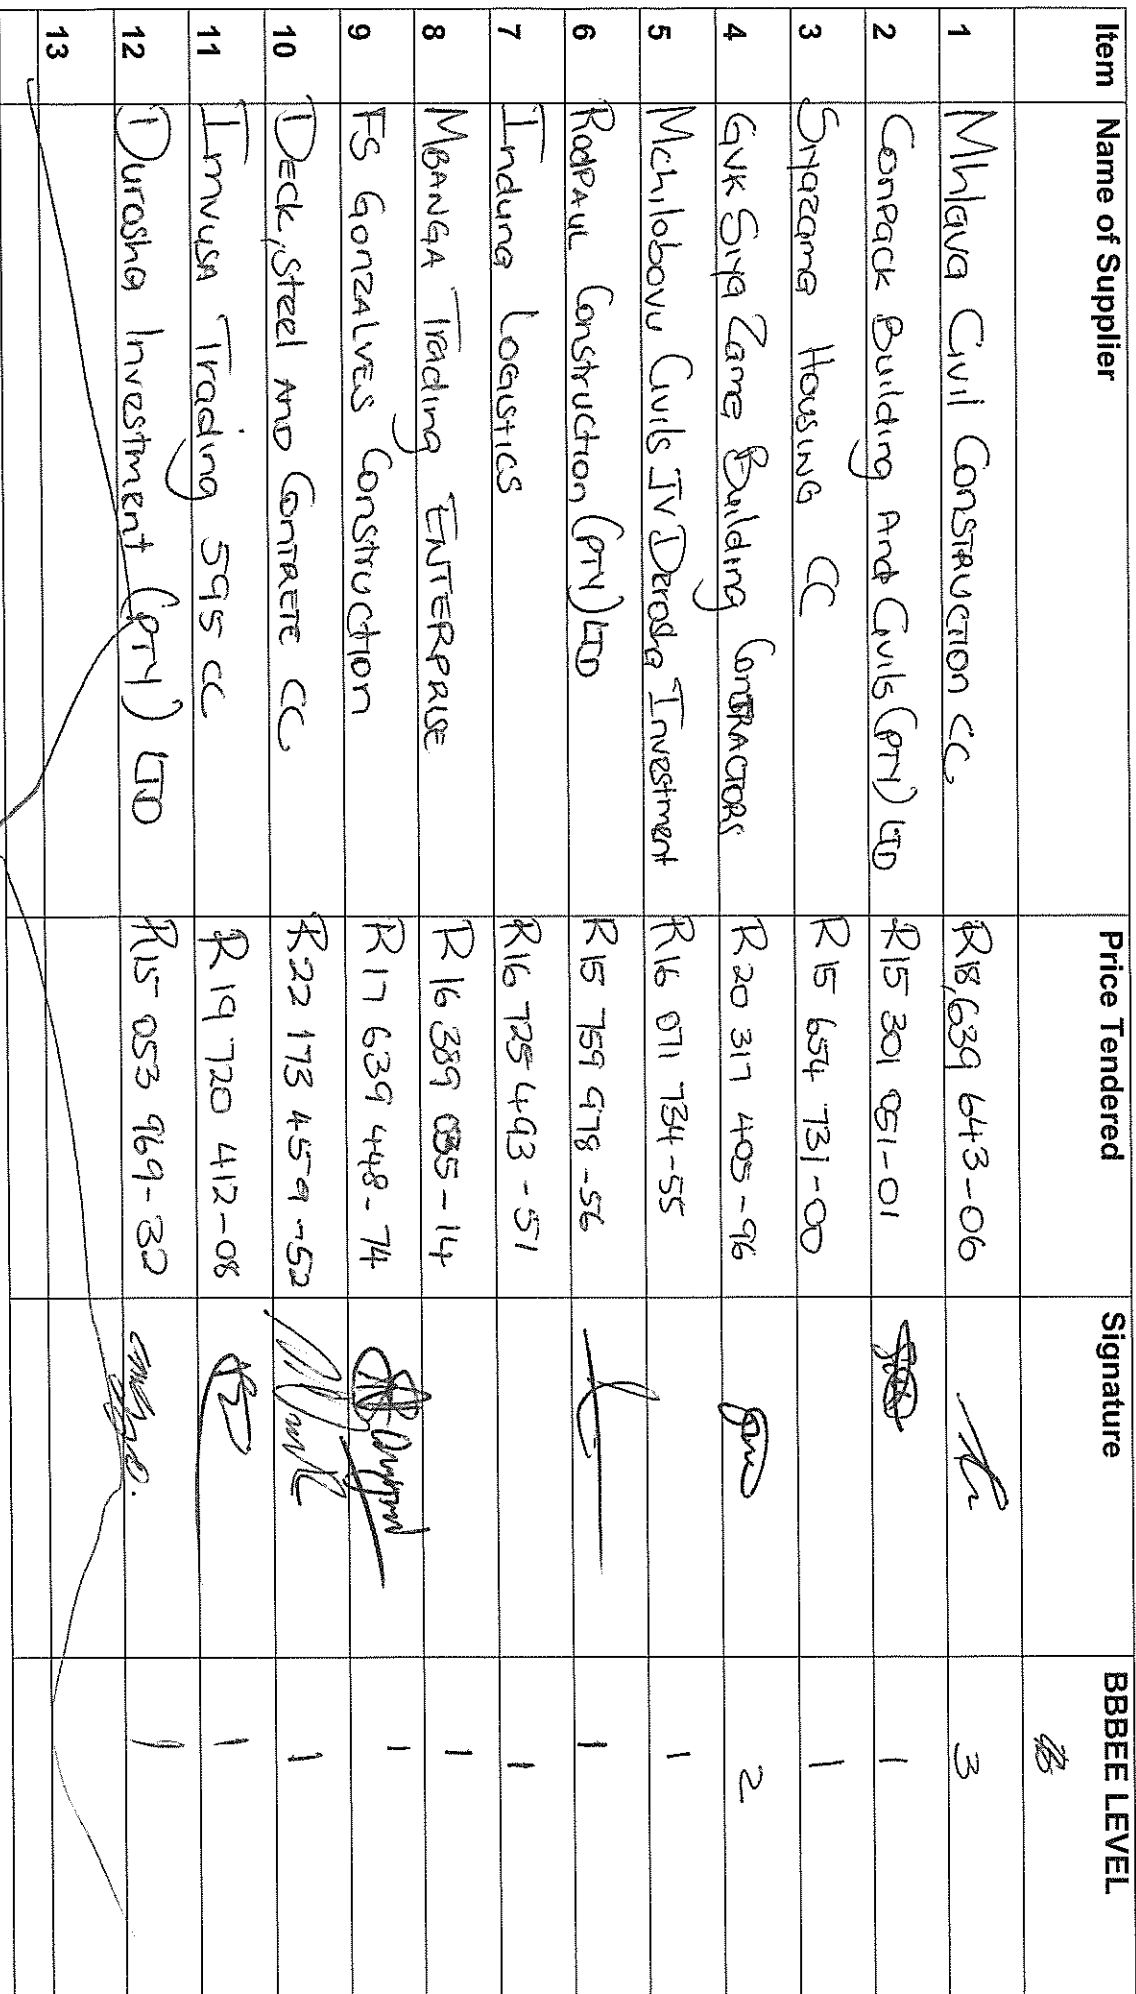 Item Name of Supplier Price Tendered Signature BBBEE LEVEL
1 Mhlava Civil CONSTRUCTION CC R18,639 643-06 3
2 Conpack Building And Civils (PTY) LTD R15 301 051-01 1
3 Siyazama HOUSING CC R15 654 731-00 1
4 GVK Siya Zama Building CONTRACTORS R 20 317 405-96 2
5 Mchilobovu Civils JV Derosha Investment R16 071 734-55 1
6 RodPAUL Construction (PTY) LTD R15 759 978-56 1
7 Induna LOGISTICS R16 725 493-51 1
8 MBANGA Trading ENTERPRISE R 16 389 035-14 1
9 FS GONZALVES Construction R 17 639 448-74 1
10 DECK, Steel AND CONTRETE CC R22 173 459-52 1
11 Imvusa Trading 595 CC R 19 720 412-08 1
12 Durosha Investment (PTY) LTD R15 053 969-30 1
13